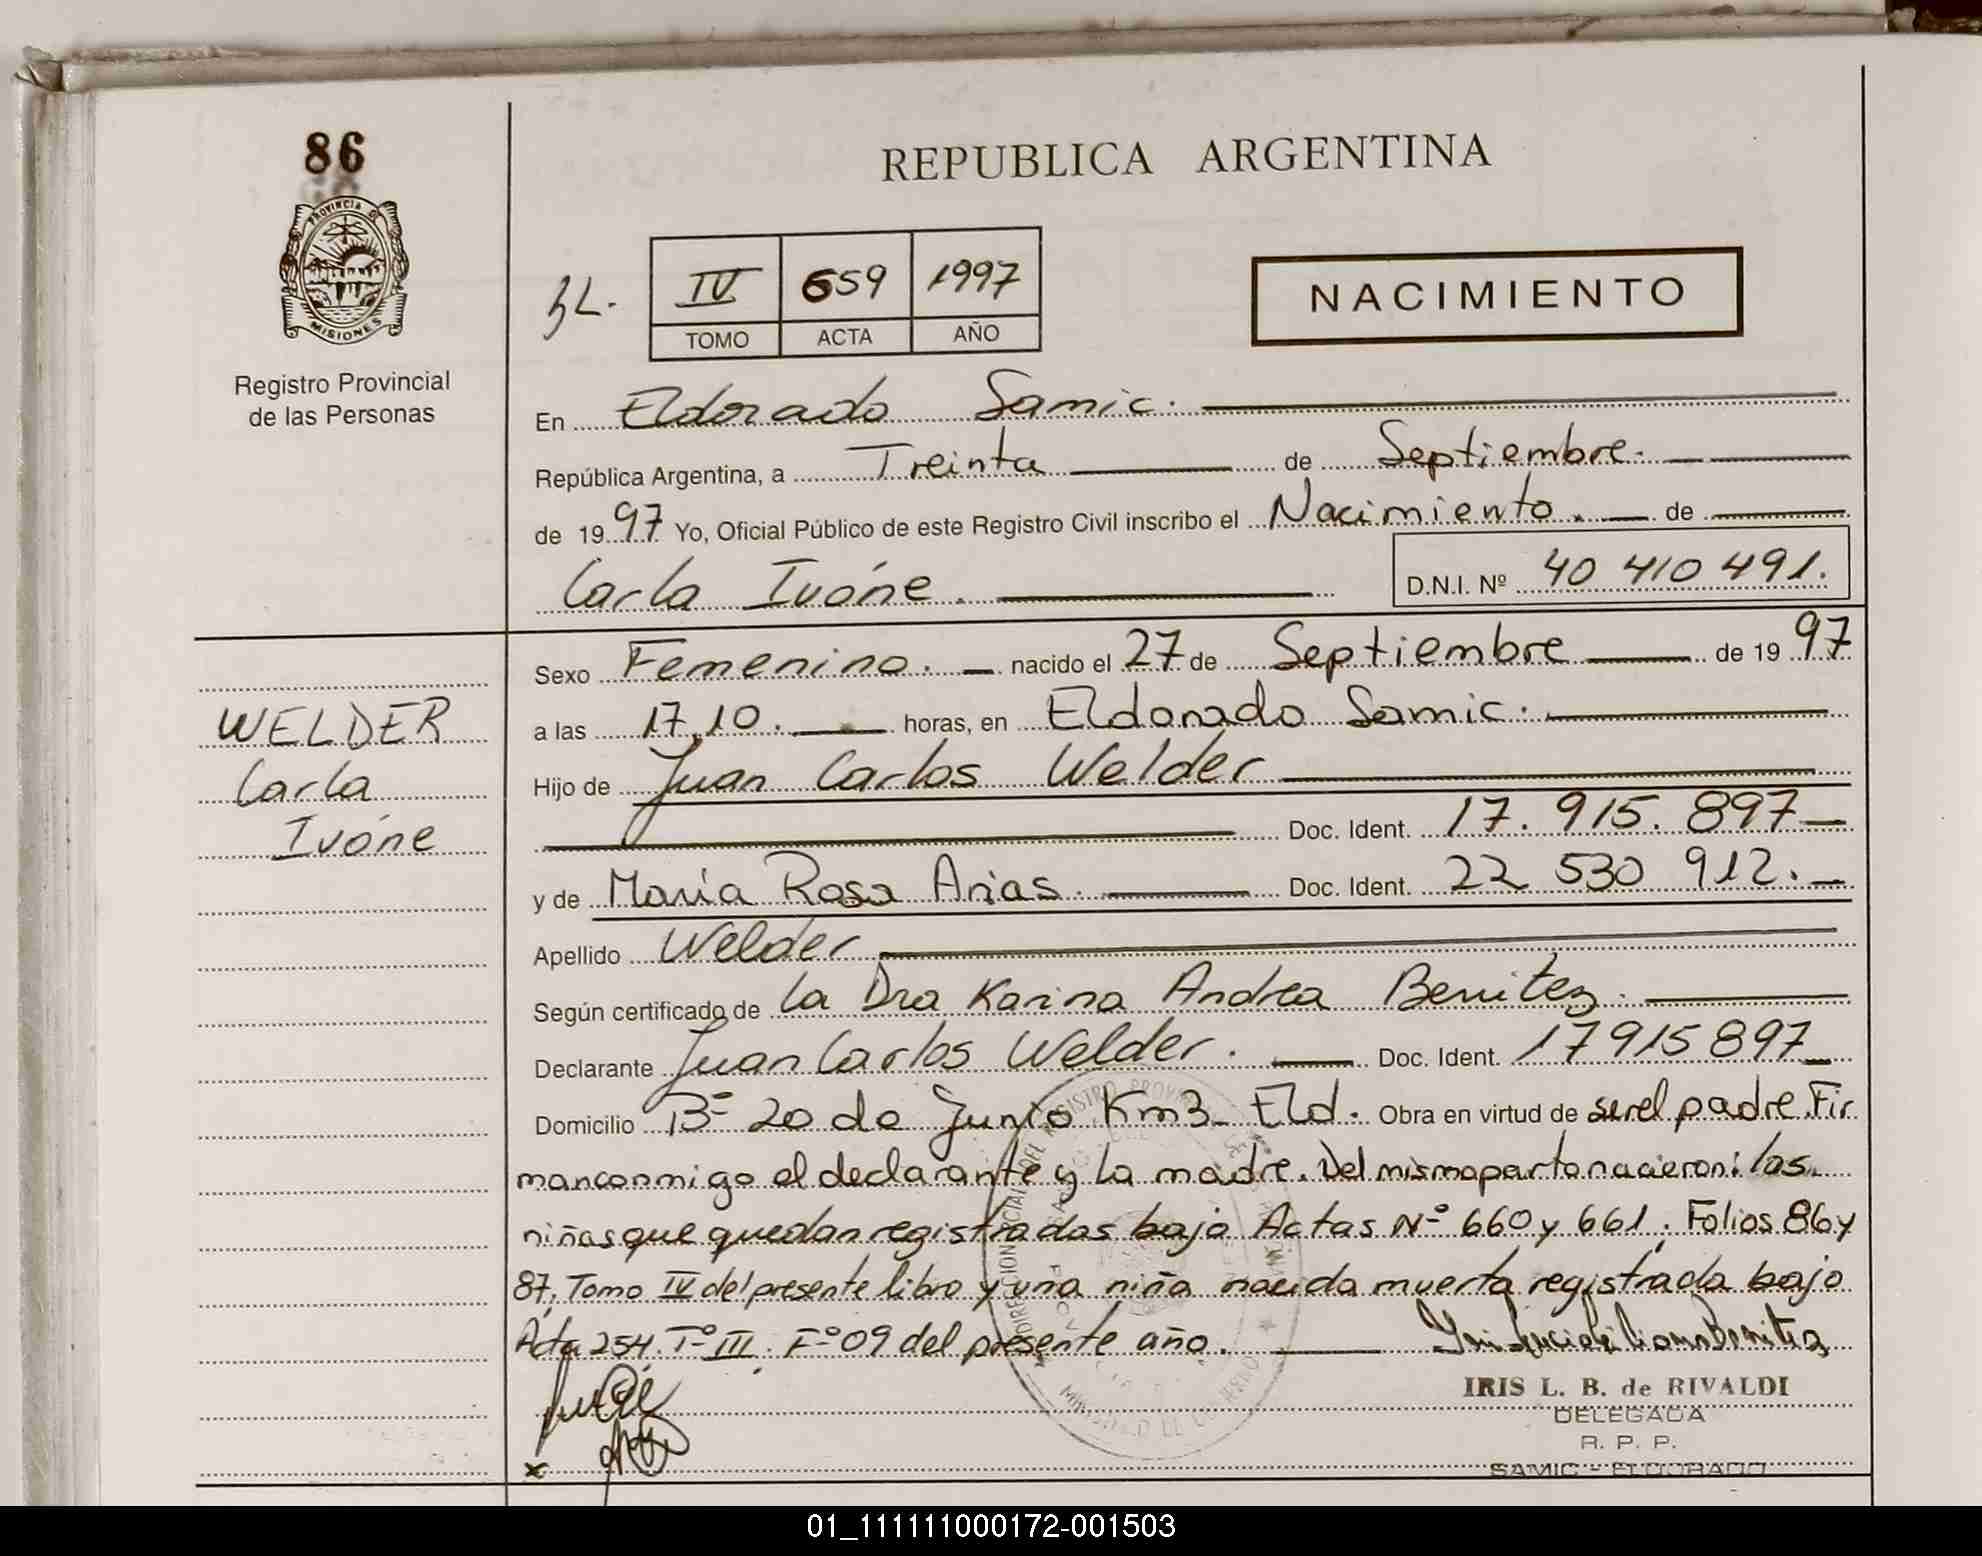 86
PROVINCIA DE
MISIONES
Registro Provincial
de las Personas
REPUBLICA ARGENTINA
IV 659 1997
TOMO ACTA AÑO
NACIMIENTO
En Eldorado Samic.
República Argentina, a Treinta de Septiembre.
de 1997 Yo, Oficial Público de este Registro Civil inscribo el Nacimiento. de
Carla Ivóne. D.N.I. Nº 40 410 491.
Sexo Femenino. nacido el 27 de Septiembre de 1997
a las 17,10. horas, en Eldorado Samic.
Hijo de Juan Carlos Welder
Doc. Ident. 17.915.897
y de María Rosa Arias. Doc. Ident. 22 530 912.
Apellido Welder
Según certificado de la Dra Karina Andrea Benitez.
Declarante Juan Carlos Welder. Doc. Ident. 17915897
Domicilio Bº 20 de Junio Km3 Eld. Obra en virtud de ser el padre. Fir
man conmigo el declarante y la madre. Del mismo parto nacieron: las
niñas que quedan registradas bajo Actas Nº 660 y 661. Folios 86 y
87. Tomo IV del presente libro y una niña nacida muerta registrada bajo
Acta 254. Tº III. Fº 09 del presente año.
WELDER
Carla
Ivóne
IRIS L. B. de RIVALDI
DELEGADA
R. P. P.
SAMIC - ELDORADO
01_111111000172-001503